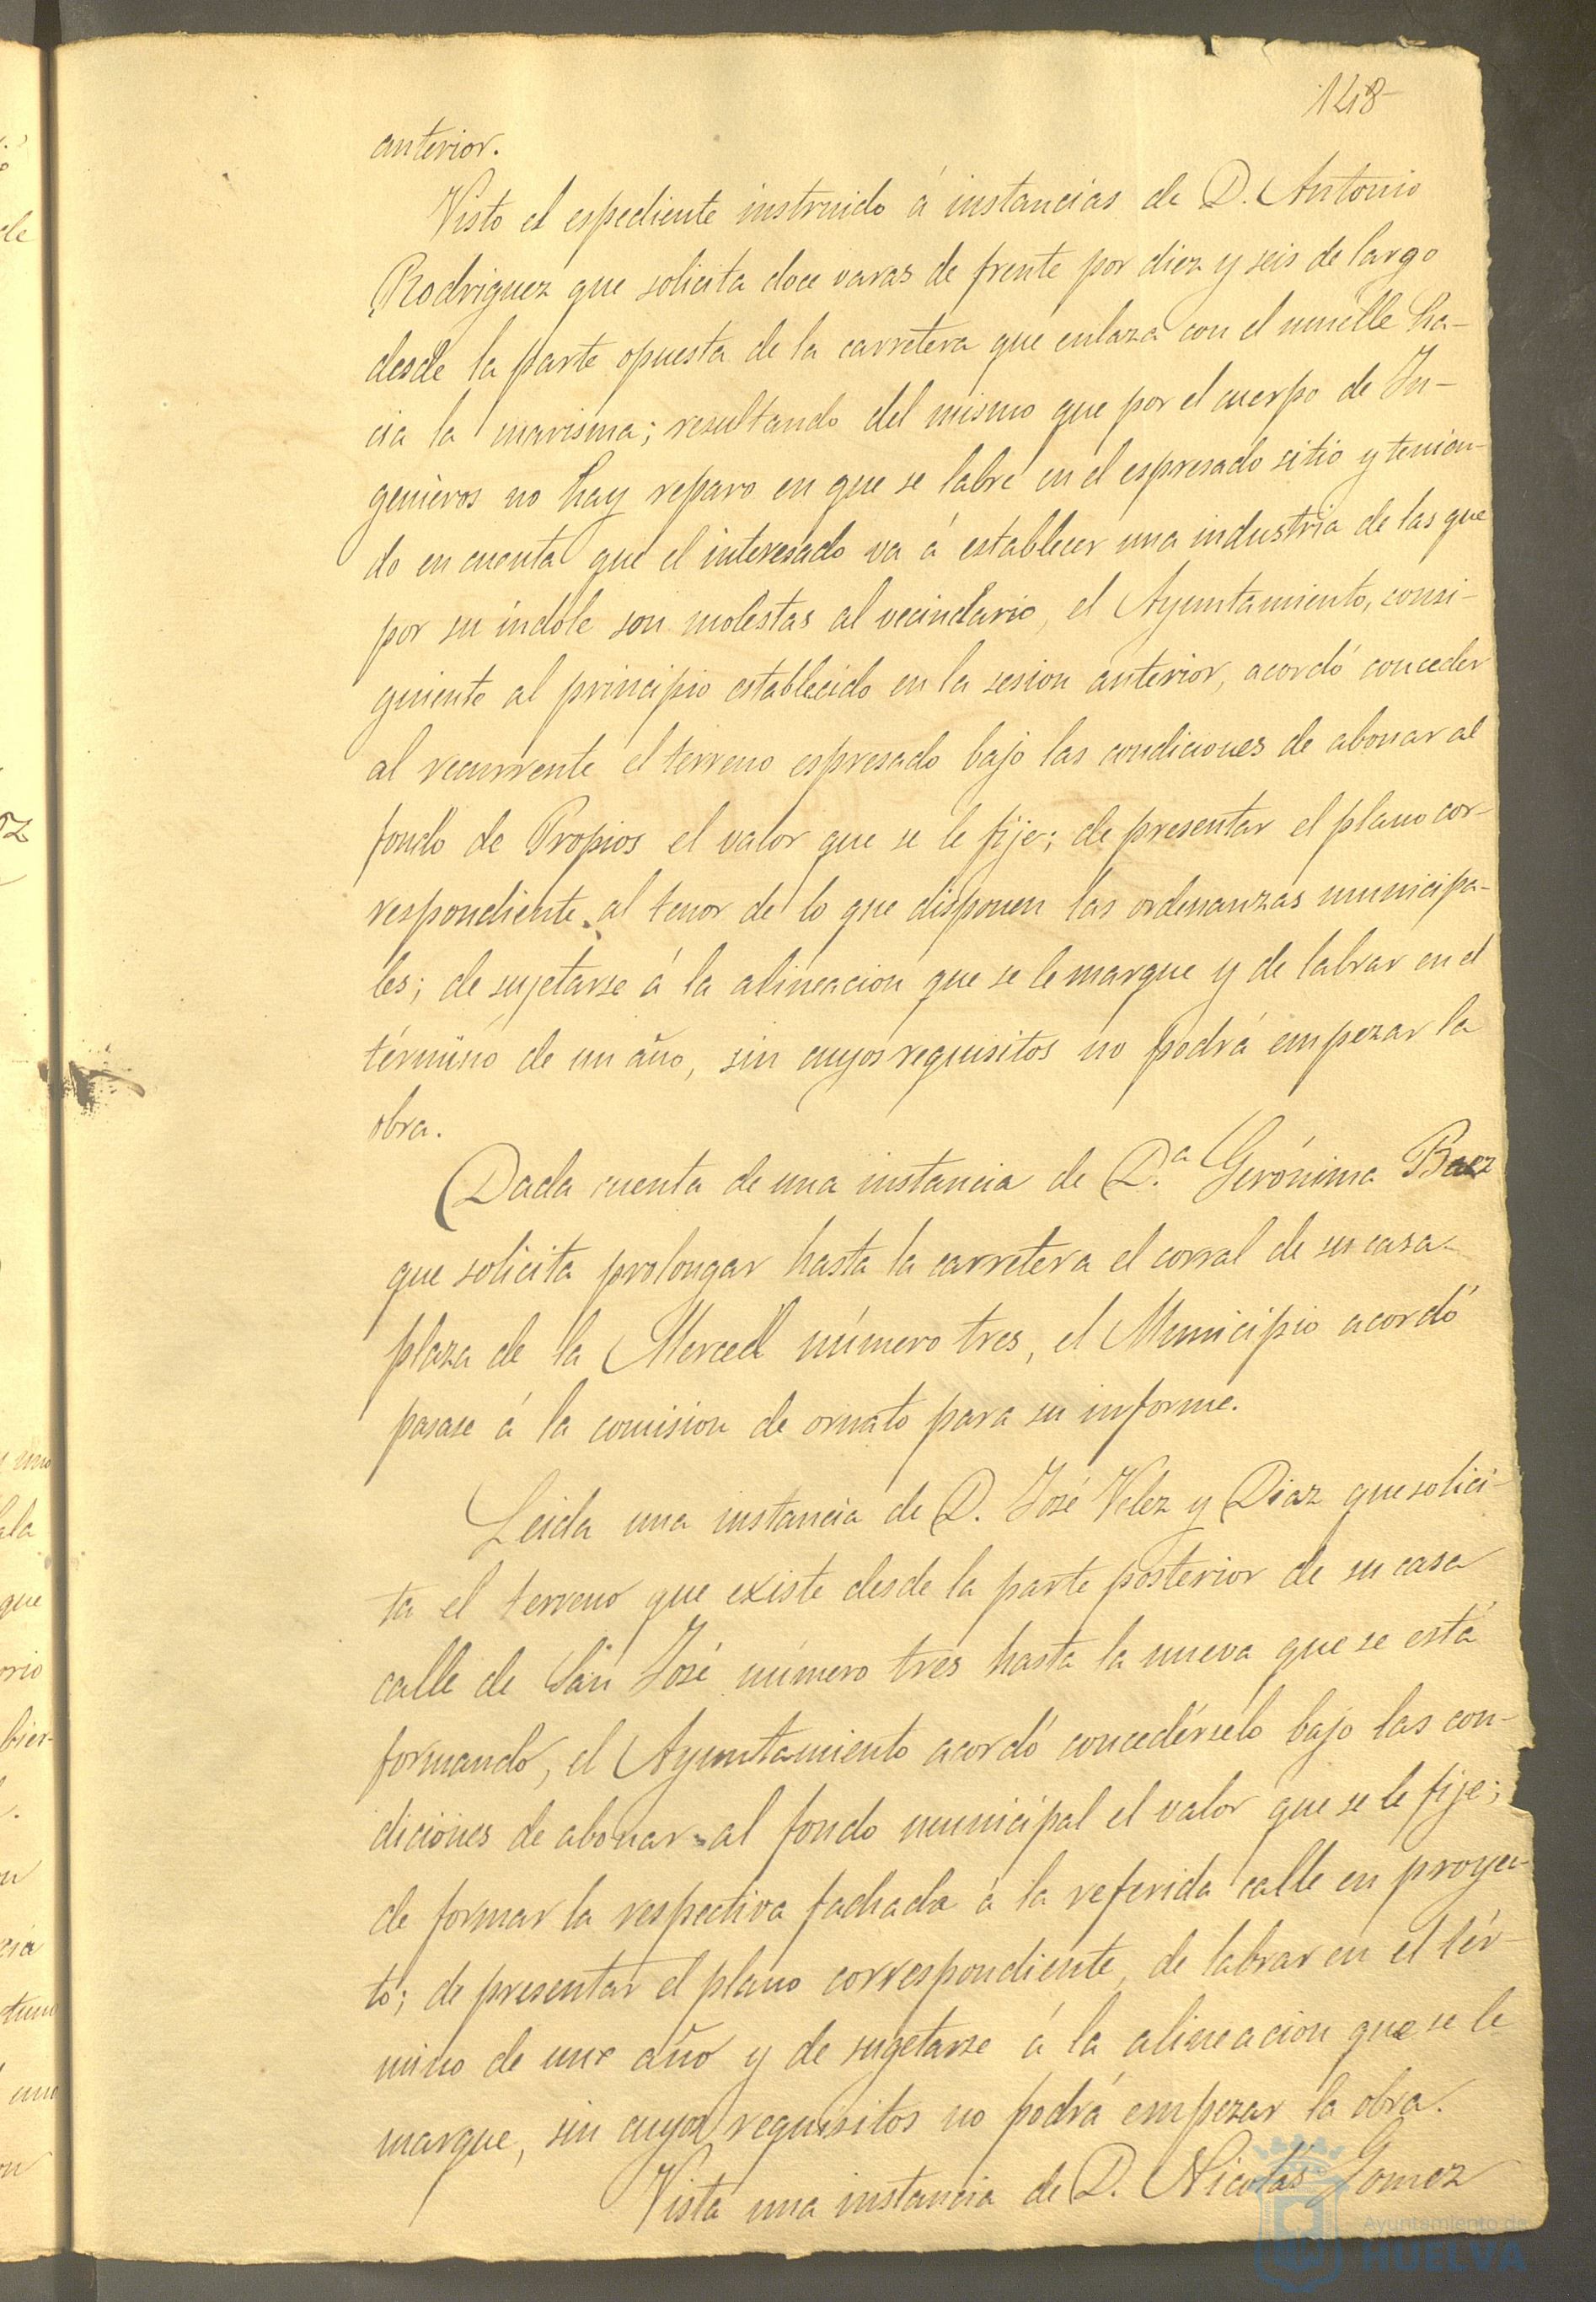 148
anterior.
Visto el espediente instruido á instancias de D. Antonio
Rodriguez que solicita doce varas de frente por diez y seis de largo
desde la parte opuesta de la carretera que enlaza con el muelle ha-
cia la marisma; resultando del mismo que por el cuerpo de In-
genieros no hay reparo en que se labre en el espresado sitio y tenien-
do en cuenta que el interesado va á establecer una industria de las que
por su índole son molestas al vecindario, el Ayuntamiento, consi-
guiente al principio establecido en la sesion anterior, acordó conceder
al recurrente el terreno espresado bajo las condiciones de abonar al
fondo de Propios el valor que se le fije; de presentar el plano cor-
respondiente al tenor de lo que disponen las ordenanzas municipa-
les; de sujetarse á la alineacion que se le marque y de labrar en el
término de un año, sin cuyos requisitos no podrá empezar la
obra.
Dada cuenta de una instancia de D.ª Gerónima Baez
que solicita prolongar hasta la carretera el corral de su casa
plaza de la Merced número tres, el Municipio acordó
pasase á la comision de ornato para su informe.
Leida una instancia de D. José Velez y Diaz que solici-
ta el terreno que existe desde la parte posterior de su casa
calle de San José número tres hasta la nueva que se está
formando, el Ayuntamiento acordó concedérselo bajo las con-
diciones de abonar al fondo municipal el valor que se le fije;
de formar la respectiva fachada á la referida calle en proyec-
to; de presentar el plano correspondiente, de labrar en el tér-
mino de un año y de sugetarse á la alineacion que se le
marque, sin cuyos requisitos no podrá empezar la obra.
Vista una instancia de D. Nicolás Gomez
Ayuntamiento de
HUELVA